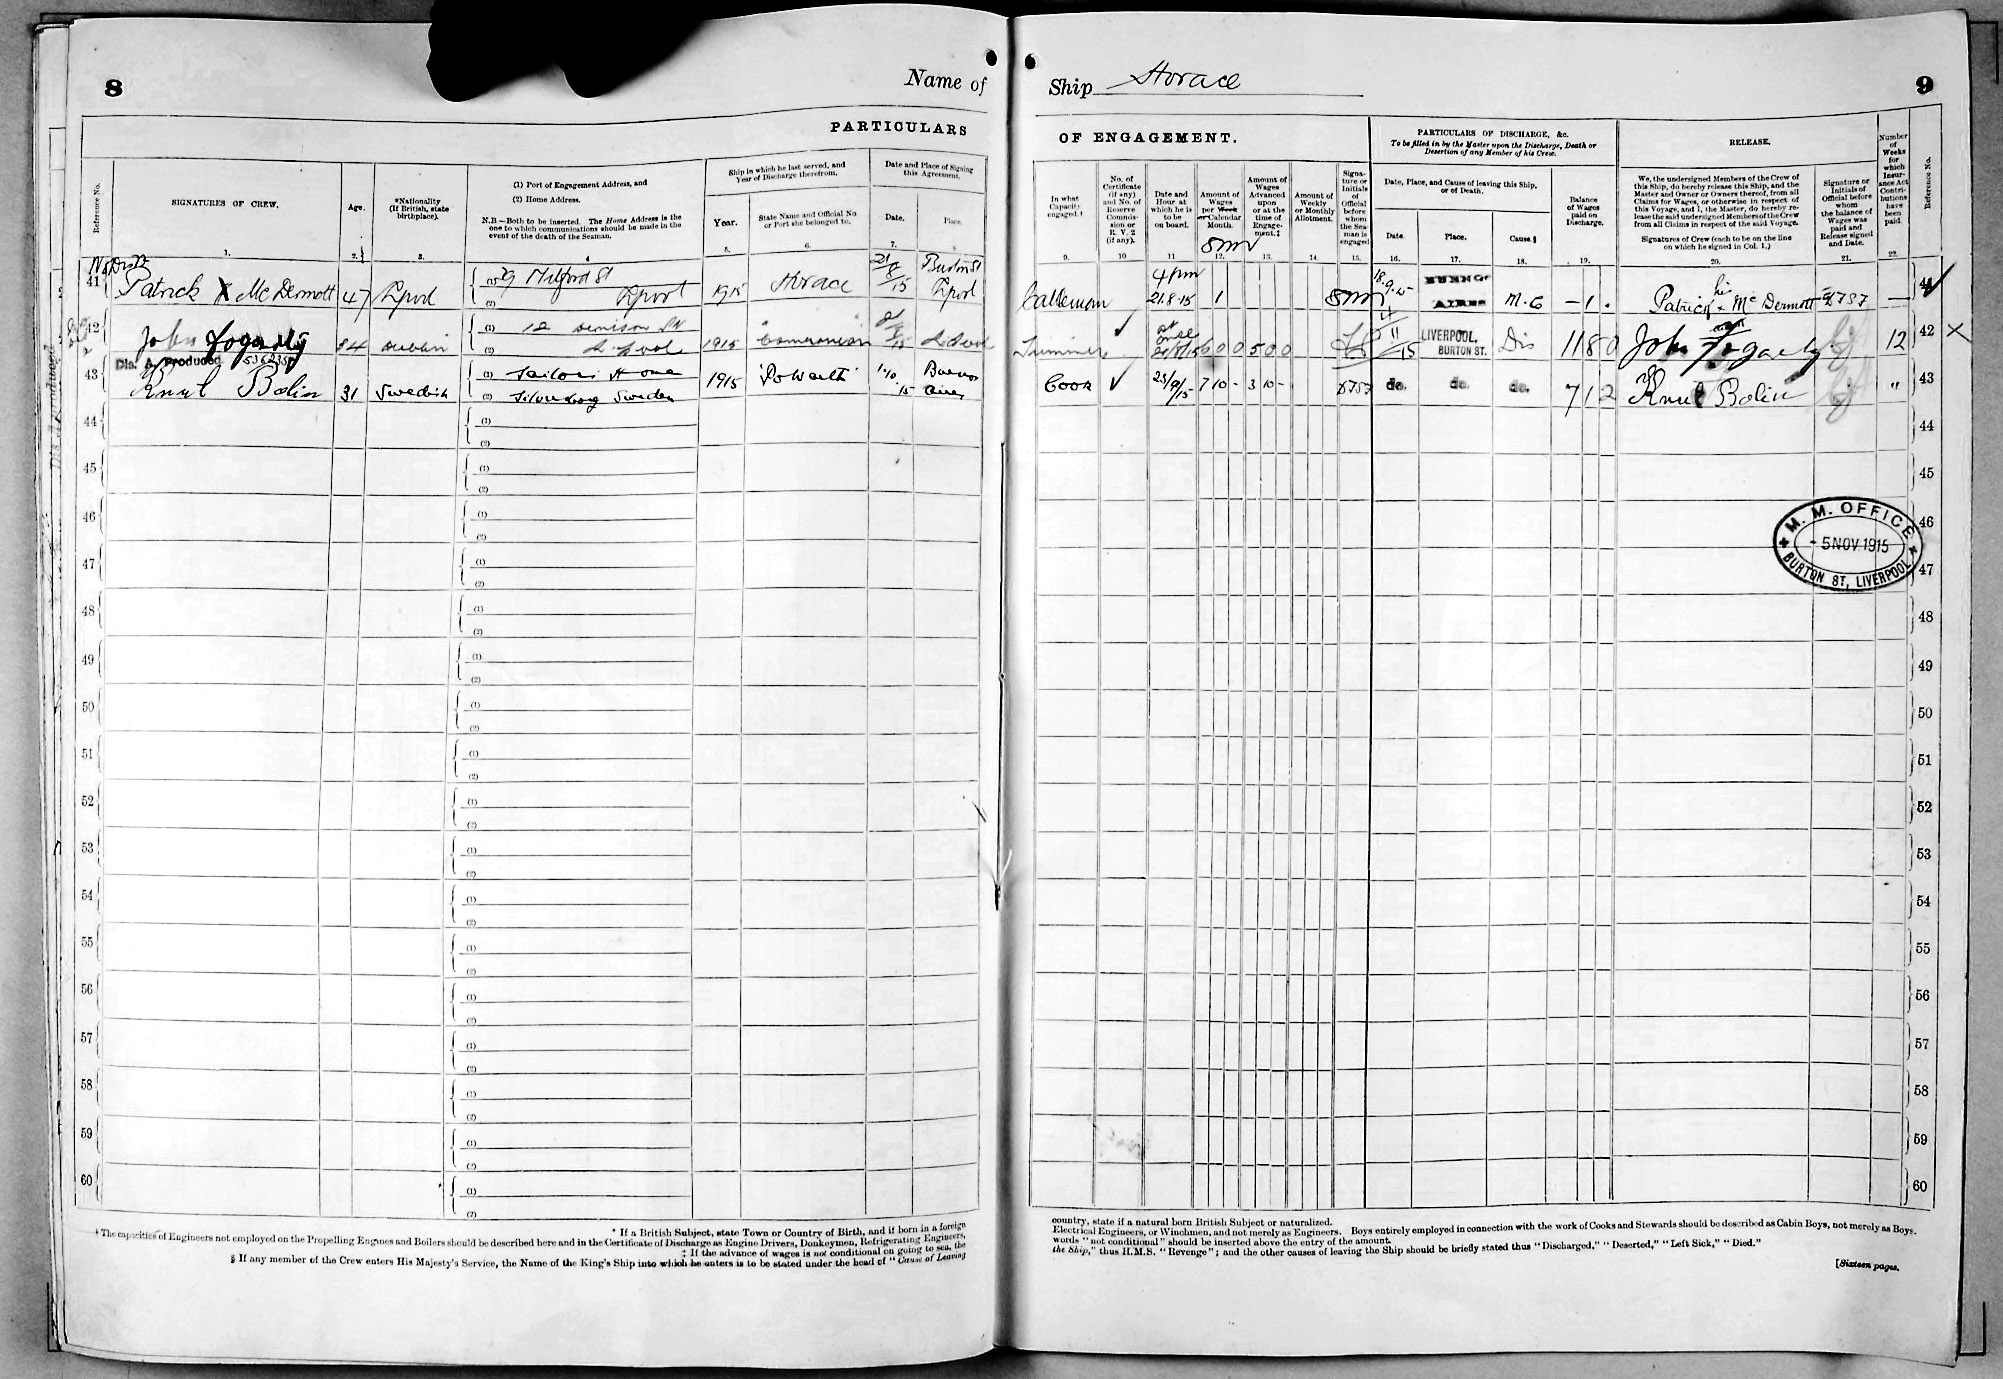 8
Name of
PARTICULARS
Reference No.
SIGNATURES OF CREW.
Age.
*Nationality
(If British, state
birthplace).
(1) Port of Engagement Address, and
(2) Home Address.
N.B.—Both to be inserted. The Home Address is the
one to which communications should be made in the
event of the death of the Seaman.
Ship in which he last served, and
Year of Discharge therefrom.
Year.
State Name and Official No
or Port she belonged to.
Date and Place of Signing
this Agreement.
Date.
Place.
1. 2. 3. 4. 5. 6. 7. 8
41 Patrick X McDermott 47 Lpool (1) 29 Milford St (2) Lpool 1915 Horace 21/8/15 Burton St Lpool
42 John Fogarty 34 Dublin (1) 12 Denison St (2) L'pool 1915 21/8/15 L'pool
Dis. A. produced 536235
43 Knut Bolin 31 Swedish (1) Sailors Home (2) Sweden 1915 Buenos Aires
44 (1)
(2)
45 (1)
(2)
46 (1)
(2)
47 (1)
(2)
48 (1)
(2)
49 (1)
(2)
50 (1)
(2)
51 (1)
(2)
52 (1)
(2)
53 (1)
(2)
54 (1)
(2)
55 (1)
(2)
56 (1)
(2)
57 (1)
(2)
58 (1)
(2)
59 (1)
(2)
60 (1)
(2)
* If a British Subject, state Town or Country of Birth, and if born in a foreign
† The capacities of Engineers not employed on the Propelling Engines and Boilers should be described here and in the Certificate of Discharge as Engine Drivers, Donkeymen, Refrigerating Engineers,
‡ If the advance of wages is not conditional on going to sea, the
§ If any member of the Crew enters His Majesty's Service, the Name of the King's Ship into which he enters is to be stated under the head of "Cause of Leaving
Ship Horace
9
OF ENGAGEMENT.
In what
Capacity
engaged.†
No. of
Certificate
(if any)
and No. of
Reserve
Commis-
sion or
R. V. 2
(if any).
Date and
Hour at
which he is
to be
on board.
Amount of
Wages
per Week
or Calendar
Month.
Amount of
Wages
Advanced
upon
or at the
time of
Engage-
ment.‡
Amount of
Weekly
or Monthly
Allotment.
Signa-
ture or
Initials
of
Official
before
whom
the Sea-
man is
engaged
PARTICULARS OF DISCHARGE, &c.
To be filled in by the Master upon the Discharge, Death or
Desertion of any Member of his Crew.
Date, Place, and Cause of leaving this Ship,
or of Death.
Date.
Place.
Cause.§
Balance
of Wages
paid on
Discharge.
RELEASE.
We, the undersigned Members of the Crew of
this Ship, do hereby release this Ship, and the
Master and Owner or Owners thereof, from all
Claims for Wages, or otherwise in respect of
this Voyage, and I, the Master, do hereby re-
lease the said undersigned Members of the Crew
from all Claims in respect of the said Voyage.
Signatures of Crew (each to be on the line
on which he signed in Col. 1.)
Signature or
Initials of
Official before
whom
the balance of
Wages was
paid and
Release signed
and Date.
Number
of
Weeks
for
which
Insur-
ance Act
Contri-
butions
have
been
paid.
Reference No.
9. 10 11 12. 13. 14. 15. 16. 17. 18. 19. 20. 21. 22.
Cattleman 4pm 21.8.15 1 18.9.15 BUENOS AIRES M.C — 1 . Patrick his x McDermott — 41
Trimmer 21/8/15 6 0 0 5 0 0 4/11/15 LIVERPOOL, BURTON ST. Dis 11 8 0 John Fogarty 12 42 X
Cook 7 10 - 3 10 - do. do. do. 7 1 2 Knut Bolin " 43
44
45
46
M. M. OFFICE
- 5 NOV 1915
BURTON ST, LIVERPOOL
47
48
49
50
51
52
53
54
55
56
57
58
59
60
country, state if a natural born British Subject or naturalized.
Electrical Engineers, or Winchmen, and not merely as Engineers. Boys entirely employed in connection with the work of Cooks and Stewards should be described as Cabin Boys, not merely as Boys.
words "not conditional" should be inserted above the entry of the amount.
the Ship," thus H.M.S. "Revenge"; and the other causes of leaving the Ship should be briefly stated thus "Discharged," "Deserted," "Left Sick," "Died."
[Sixteen pages.